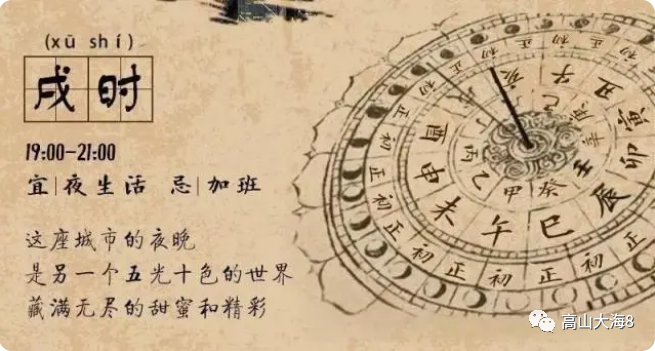 (xū shí)
戌时
19:00-21:00
宜|夜生活 忌|加班
这座城市的夜晚
是另一个五光十色的世界
藏满无尽的甜蜜和精彩
亥 子 丑 寅 卯 辰 巳 午 未 申
甲 乙 丙 壬 癸
初 正 初 正 初 正 初 正 初 正 初 正
高山大海8